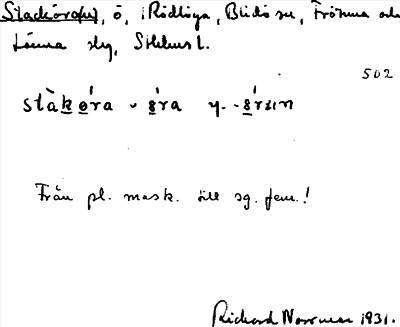 Stacköra(n), ö, i Rödlöga, Blidö sn, Frötuna och
Länna skg, Sthlms l.
502
stàkø̀ra ~ -ǿra y. -ǿrsın
Från pl. mask. till sg. fem.!
Richard Norrman 1931.